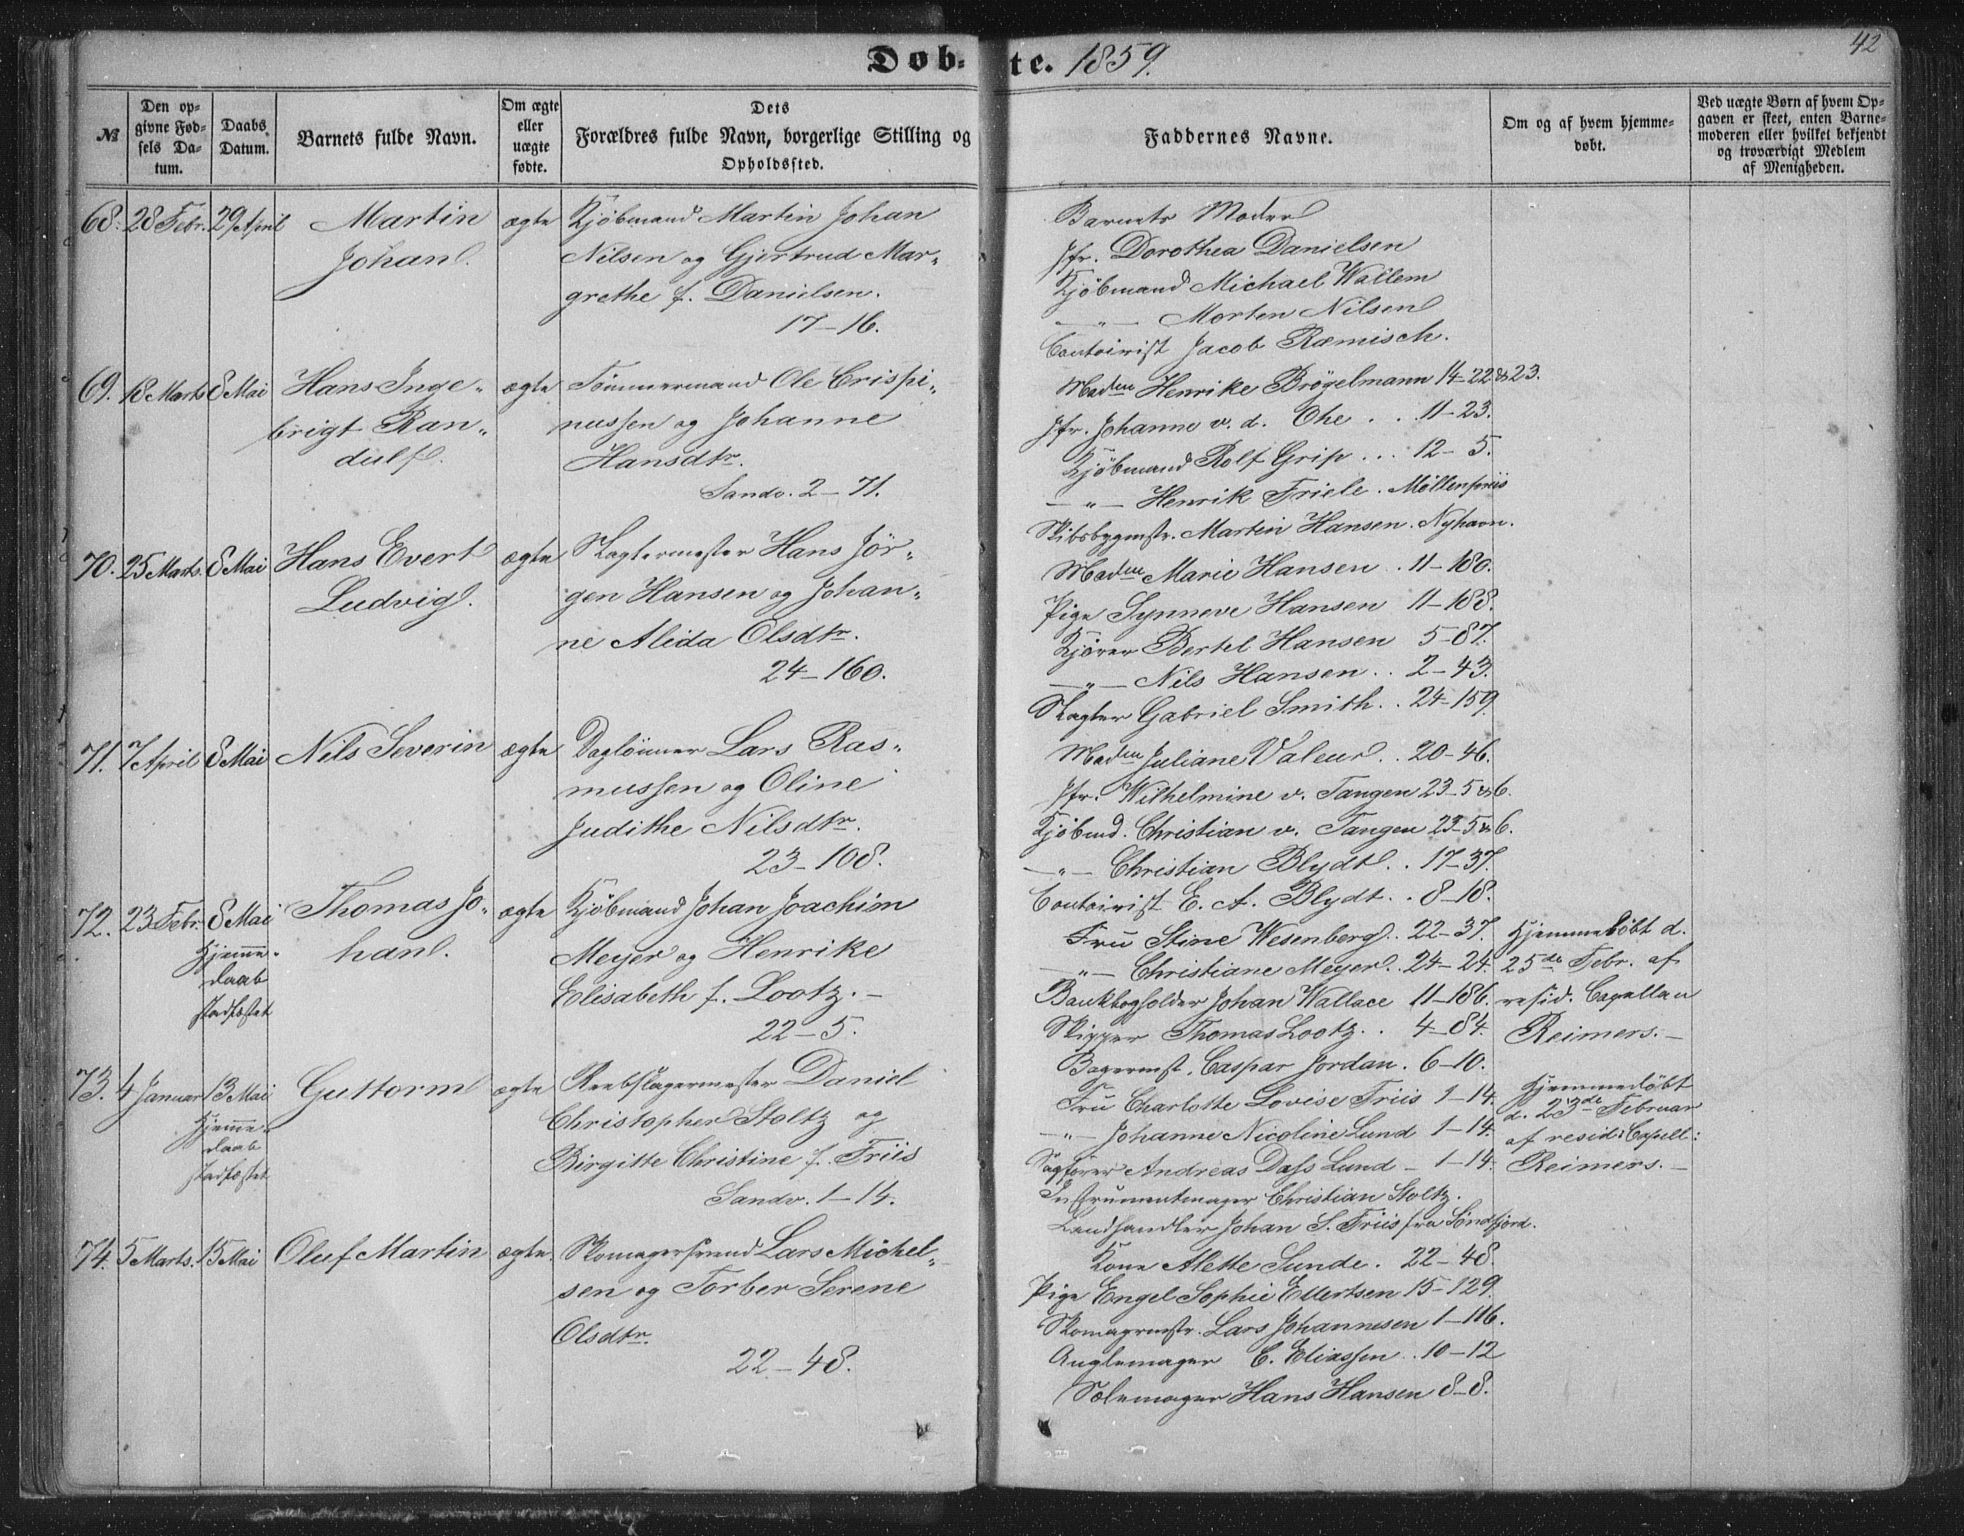 Døb-te. 1859.
42
№
Den opgivne Fødsels Datum.
Daabs Datum.
Barnets fulde Navn.
Om ægte eller uægte fødte.
Dets Forældres fulde Navn, borgerlige Stilling og Opholdssted.
Faddernes Navne.
Om og af hvem hjemmedøbt.
Ved uægte Børn af hvem Opgaven er skeet, enten Barnemoderen eller hvilket bekjendt og troværdigt Medlem af Menigheden.
68. 28 Febr. 29 April Martin ægte Kjøbmand Martin Johan
Johan. Nilsen og Gjertrud Mar-
grethe f. Danielsen.
17-16.
Barnets Moder
Jfr. Dorothea Danielsen
Kjøbmand Michael Wallem
—"— Morten Nilsen
Contoirist Jacob Ræmisch.
69. 18 Marts 8 Mai Hans Inge- ægte Tømmermand Ole Crispi-
brigt Ran- nussen og Johanne
dulf. Hansdtr.
Sandv. 2-71.
Madm Henrike Brögelmann 14-22 & 23.
Jfr. Johanne v. d. Ohe . . 11-23.
Kjøbmand Rolf Grip ... 12-5.
—"— Henrik Friele. Møllenpriis
Skibsbygmstr. Martin Hansen. Nyhavn.
70. 25 Marts. 8 Mai Hans Evert ægte Slagtermester Hans Jör-
Ludvig. gen Hansen og Johan-
ne Alida Olsdtr.
24-160.
Madm Marie Hansen . 11-180.
Pige Synneve Hansen 11-188.
Kjører Bertel Hansen 5-87.
—"— Nils Hansen . . 2-43.
Slagter Gabriel Smith. . 24-159.
71. 7 April 8 Mai Nils Severin ægte Daglönner Lars Ras-
mussen og Oline
Judithe Nilsdtr.
23-108.
Madm Juliane Valeur. . 20-46.
Jfr. Wilhelmine v. Tangen 23-5 & 6.
Kjøbmd. Christian v. Tangen 23-5 & 6.
—"— Christian Blydt. . 17-37.
Contoirist E. A. Blydt. . 8-18.
72. 23 Febr. 8 Mai Thomas Jo- ægte Kjøbmand Johan Joachim
Hjemme- daab stadfæstet
han. Meyer og Henrike
Elisabeth f. Lootz. —
22-5.
Fru Stine Wesenberg. . 22-37.
—"— Christiane Meyer. . 24-24.
Bankbogholder Johan Wallace 11-186.
Skipper Thomas Lootz. . 4-84.
Bagermst. Caspar Jordan. 6-10.
Hjemmedöbt d.
25de Febr. af
resid. Capellan
Reimers. —
73. 4 Januar 13 Mai Guttorm ægte Reebslagermester Daniel
Hjemme- daab stadfæstet
Christopher Stoltz og
Birgitte Christine f. Friis
Sandv. 1-14.
Fru Charlotte Lovise Friis 1-14.
—"— Johanne Nicoline Lund 1-14.
Sagfører Andreas Dass Lund - 1-14.
Instrumentmager Christian Stoltz.
Landhandler Johan S. Friis fra Söndfjord.
Hjemmedöbt
d. 23de Februar
af resid: Capell:
Reimers. —
74. 5 Marts. 15 Mai Oluf Martin ægte. Skomagersvend Lars Michel-
sen og Torber Serene
Olsdtr.
22-48.
Kone Alette Sunde. 22-48.
Pige Engel Sophie Ellertsen 15-129.
Skomagermstr. Lars Johannesen 1-116.
C. Eliassen . . 10-12
Hans Hansen 8-8.